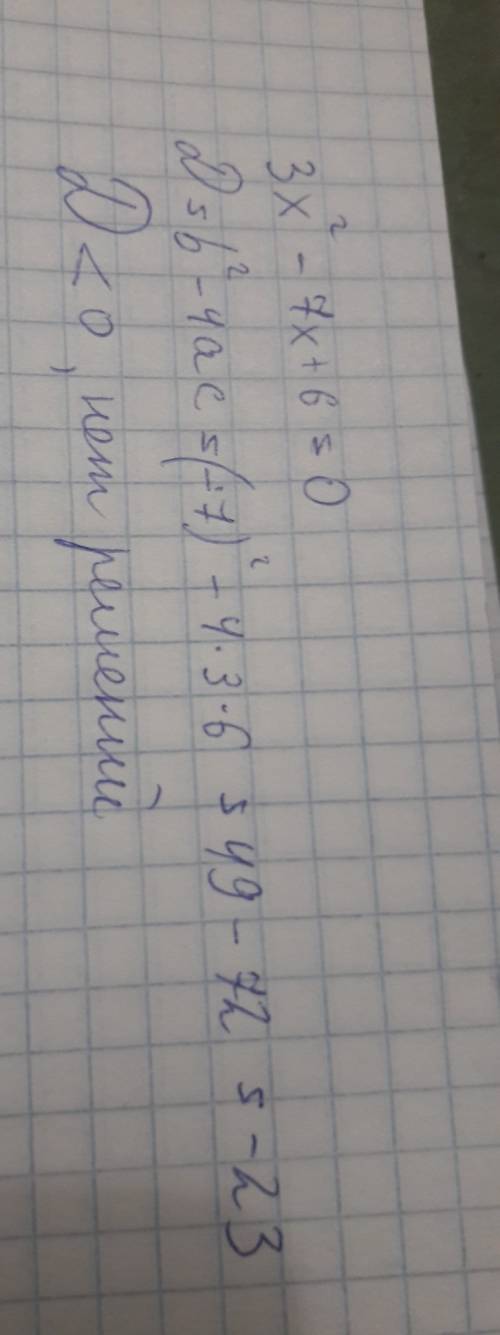 3x² - 7x + 6 = 0
D = b² - 4ac = (-7)² - 4·3·6 = 49 - 72 = -23
D < 0, нет решений